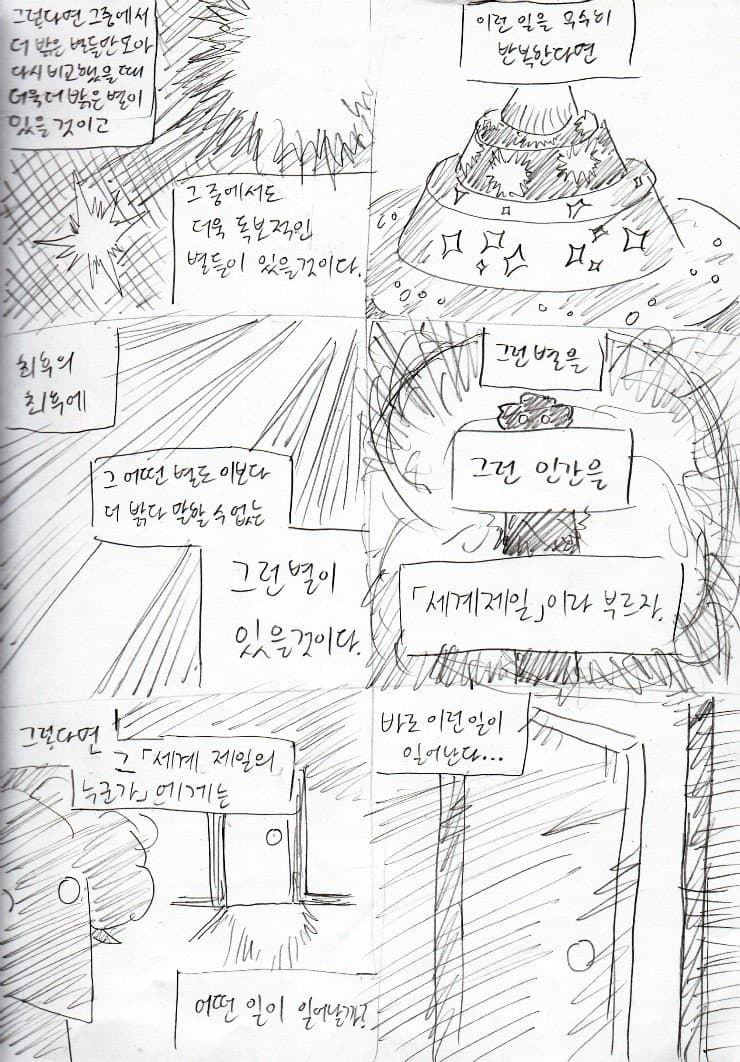 그렇다면 그중에서
더 밝은 별들만 모아
다시 비교했을 때
더욱 더 밝은 별이
있을 것이고
그 중에서도
더욱 독보적인
별들이 있을것이다.
이런 일을 무수히
반복한다면
최후의
최후에
그 어떤 별도 이보다
더 밝다 말할 수 없는
그런 별이
있을것이다.
그런 별을
그런 인간을
「세계제일」이라 부르자.
그렇다면
그 「세계 제일의
누군가」에게는
어떤 일이 일어날까?
바로 이런 일이
일어난다...